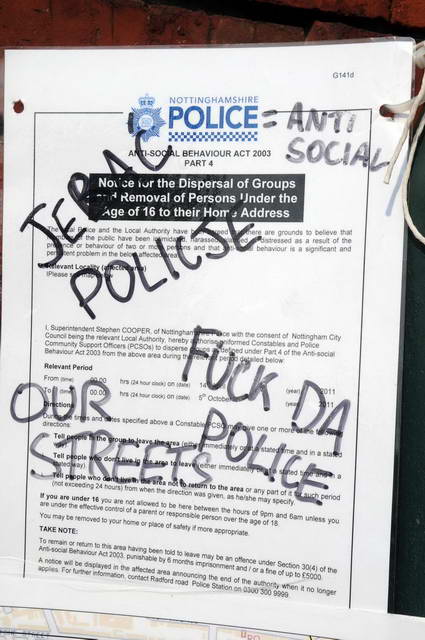 G141d
NOTTINGHAMSHIRE
POLICE
= ANTI
SOCIAL
ANTI-SOCIAL BEHAVIOUR ACT 2003
PART 4
Notice for the Dispersal of Groups
and Removal of Persons Under the
Age of 16 to their Home Address
JEBAĆ
POLICJE
The Local Police and the Local Authority have been there are grounds to believe that
members of the public have been intimidated, harassed distressed as a result of the
presence or behaviour of two or more persons and that behaviour is a significant and
persistent problem in the below affected area.
Relevant Locality (affected area)
(Please
I, Superintendent Stephen COOPER, of Nottinghamshire Police with the consent of Nottingham City
Council being the relevant Local Authority, hereby authorise uniformed Constables and Police
Community Support Officers (PCSOs) to disperse groups as defined under Part 4 of the Anti-social
Behaviour Act 2003 from the above area during the relevant period detailed below:
FUCK DA
POLICE
Relevant Period
From (time) 00.00 hrs (24 hour clock) on (date) 14 (year) 2011
To (time) 00.00 hrs (24 hour clock) on (date) 5th October (year) 2011
OUR
STREETS
Directions
During the times and dates specified above a Constable PCSO may give one or more of the following
directions:
Tell people in the group to leave the area (either immediately or at a stated time and in a stated
way).
Tell people who don't live in the area to leave (either immediately or at a stated time and in a
stated way).
Tell people who don't live in the area not to return to the area or any part of it for such period
(not exceeding 24 hours) from when the direction was given, as he/she may specify.
If you are under 16 you are not allowed to be here between the hours of 9pm and 6am unless you
are under the effective control of a parent or responsible person over the age of 18.
You may be removed to your home or place of safety if more appropriate.
TAKE NOTE:
To remain or return to this area having been told to leave may be an offence under Section 30(4) of the
Anti-social Behaviour Act 2003, punishable by 6 months imprisonment and / or a fine of up to £5000.
A notice will be displayed in the affected area announcing the end of the authority when it no longer
applies. For further information, contact Radford road Police Station on 0300 300 9999.